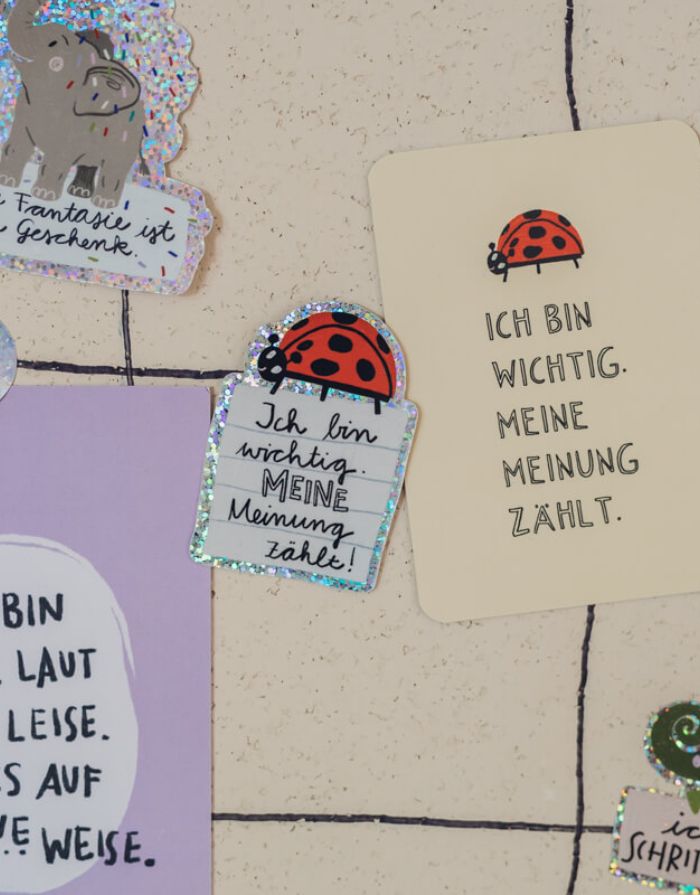 Fantasie ist
Geschenk.
ICH BIN
WICHTIG.
MEINE
MEINUNG
ZÄHLT.
Ich bin
wichtig.
MEINE
Meinung
zählt!
BIN
LAUT
LEISE.
AUF
WEISE.